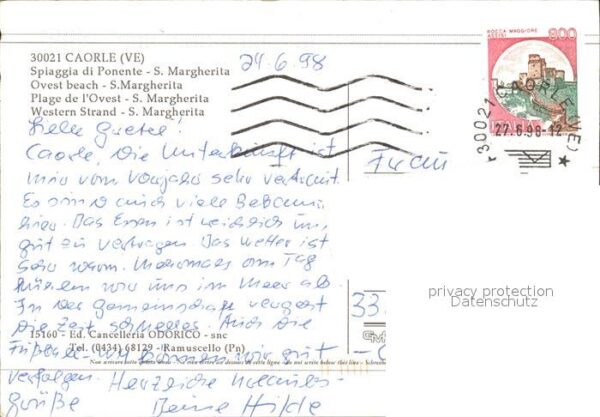 ROCCA MAGGIORE
ASSISI
800
30021 CAORLE (VE)
27.6.98-12
30021 CAORLE (VE)
Spiaggia di Ponente - S. Margherita
Ovest beach - S.Margherita
Plage de l'Ovest - S. Margherita
Western Strand - S. Margherita
24.6.98
Frau
33
Liebe Gretel!
Caorle, die Unterkunft ist
mir vom Vorjahr sehr vertraut.
Es sind auch viele Bekannte
hier. Das Essen ist reichlich und
gut zu vertragen. Das Wetter ist
sehr warm. Mehrmals am Tag
kühlen wir uns im Meer ab.
In der Gemeinschaft vergeht
die Zeit schneller. Auch die
15160 - Ed. Cancelleria ODORICO - snc
Tel. (0434) 68129 - Ramuscello (Pn)
Fußball-WM können wir gut
verfolgen. Herzliche
grüße Deine Hilde
privacy protection
Datenschutz